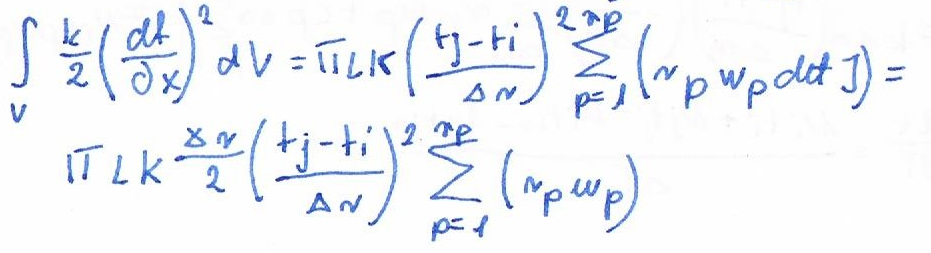 ∫_V k/2 (dt/∂x)² dV = πLK ((tj-ti)/Δr)² Σ_{p=1}^{np} (r_p w_p det J) =
πLk Δr/2 ((tj-ti)/Δr)² Σ_{p=1}^{np} (r_p w_p)